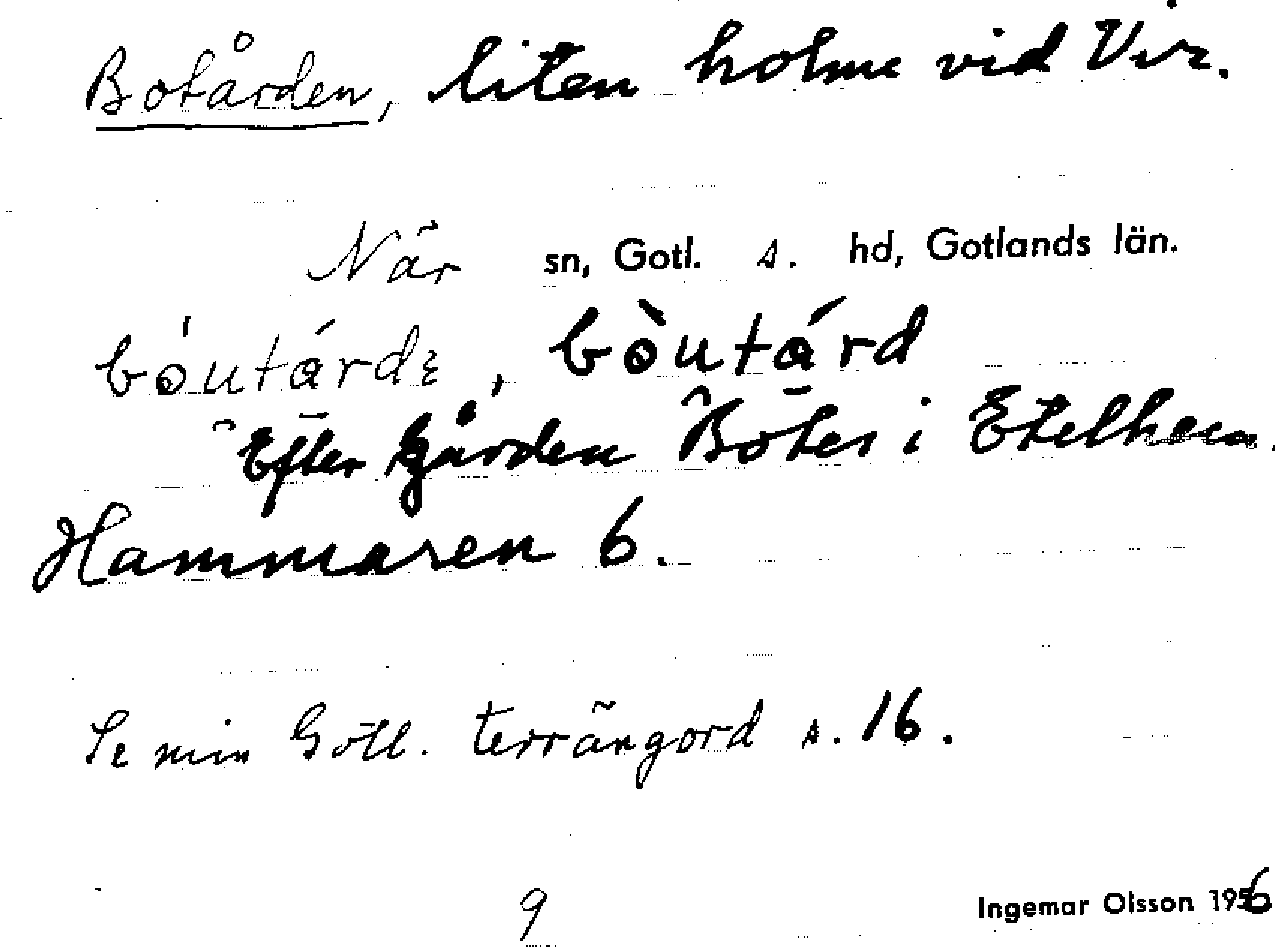 Botården, liten holme vid Vir.
När sn, Gotl. s. hd, Gotlands län.
bòutárdɛ, bòutárd
Efter gården Botes i Etelhem.
Hammaren 6.
Se min Gotl. terrängord s. 16.
9
Ingemar Olsson 1956